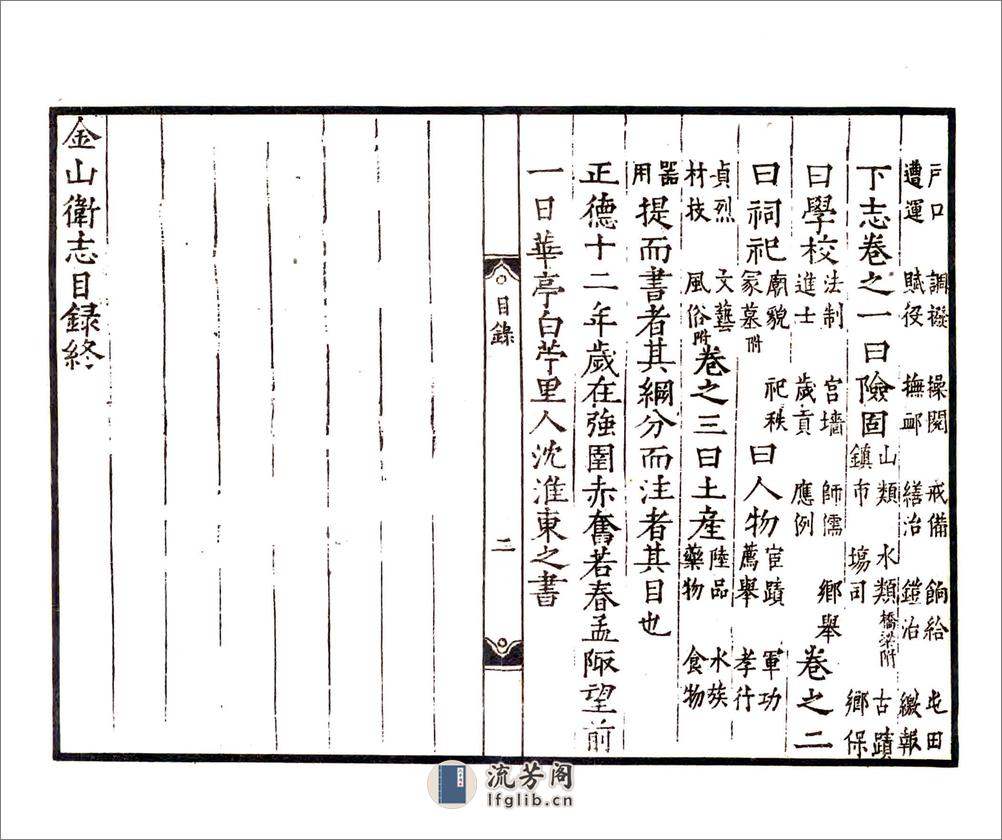 戶口 調撥 操閱 戒備 餉給 屯田
遭運 賦役 撫卹 繕治 鎧治 繳報
下志卷之一曰險固 山類 水類橋梁附 古蹟 鎮市 塲司 鄉保
曰學校 法制 宮墻 師儒 鄉舉 進士 歲貢 應例 卷之二
曰祠祀 廟貌 祀秩 冡墓附 曰人物 宦蹟 軍功 薦舉 孝行
貞烈 文藝 材技 風俗附 卷之三曰土產 陸品 水族 藥物 食物
器用 提而書者其綱分而注者其目也
正德十二年歲在強圉赤奮若春孟陬望前
一日華亭白苧里人沈淮東之書
目錄 二
金山衛志目録終
流芳阁
lfglib.cn